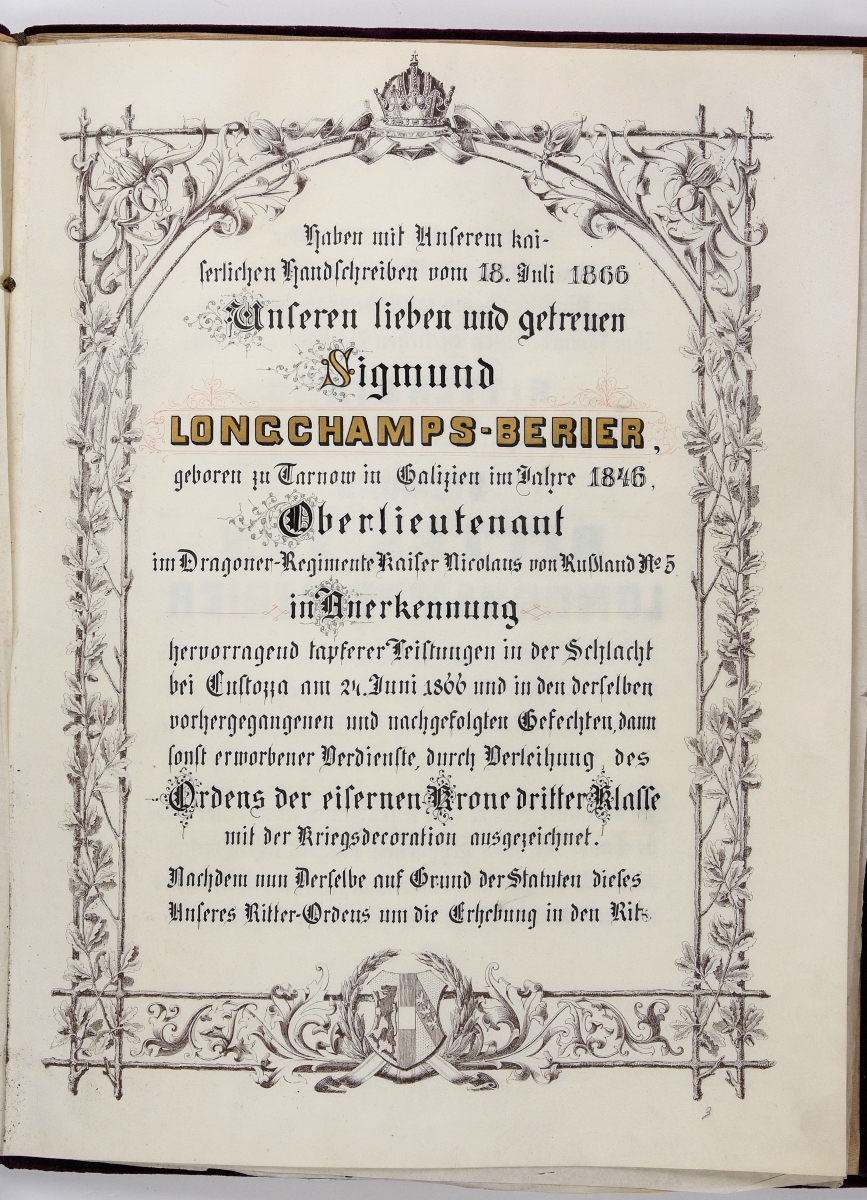 Haben mit Unserem kai-
serlichen Handschreiben vom 18. Juli 1866
Unseren lieben und getreuen
Sigmund
LONGCHAMPS-BERIER,
geboren zu Tarnow in Galizien im Jahre 1846,
Oberlieutenant
im Dragoner-Regimente Kaiser Nicolaus von Rußland No 5
in Anerkennung
hervorragend tapferer Leistungen in der Schlacht
bei Custozza am 24. Juni 1866 und in den derselben
vorhergegangenen und nachgefolgten Gefechten, dann
sonst erworbener Verdienste, durch Verleihung des
Ordens der eisernen Krone dritter Klasse
mit der Kriegsdecoration ausgezeichnet.
Nachdem nun Derselbe auf Grund der Statuten dieses
Unseres Ritter-Ordens um die Erhebung in den Rit-
3